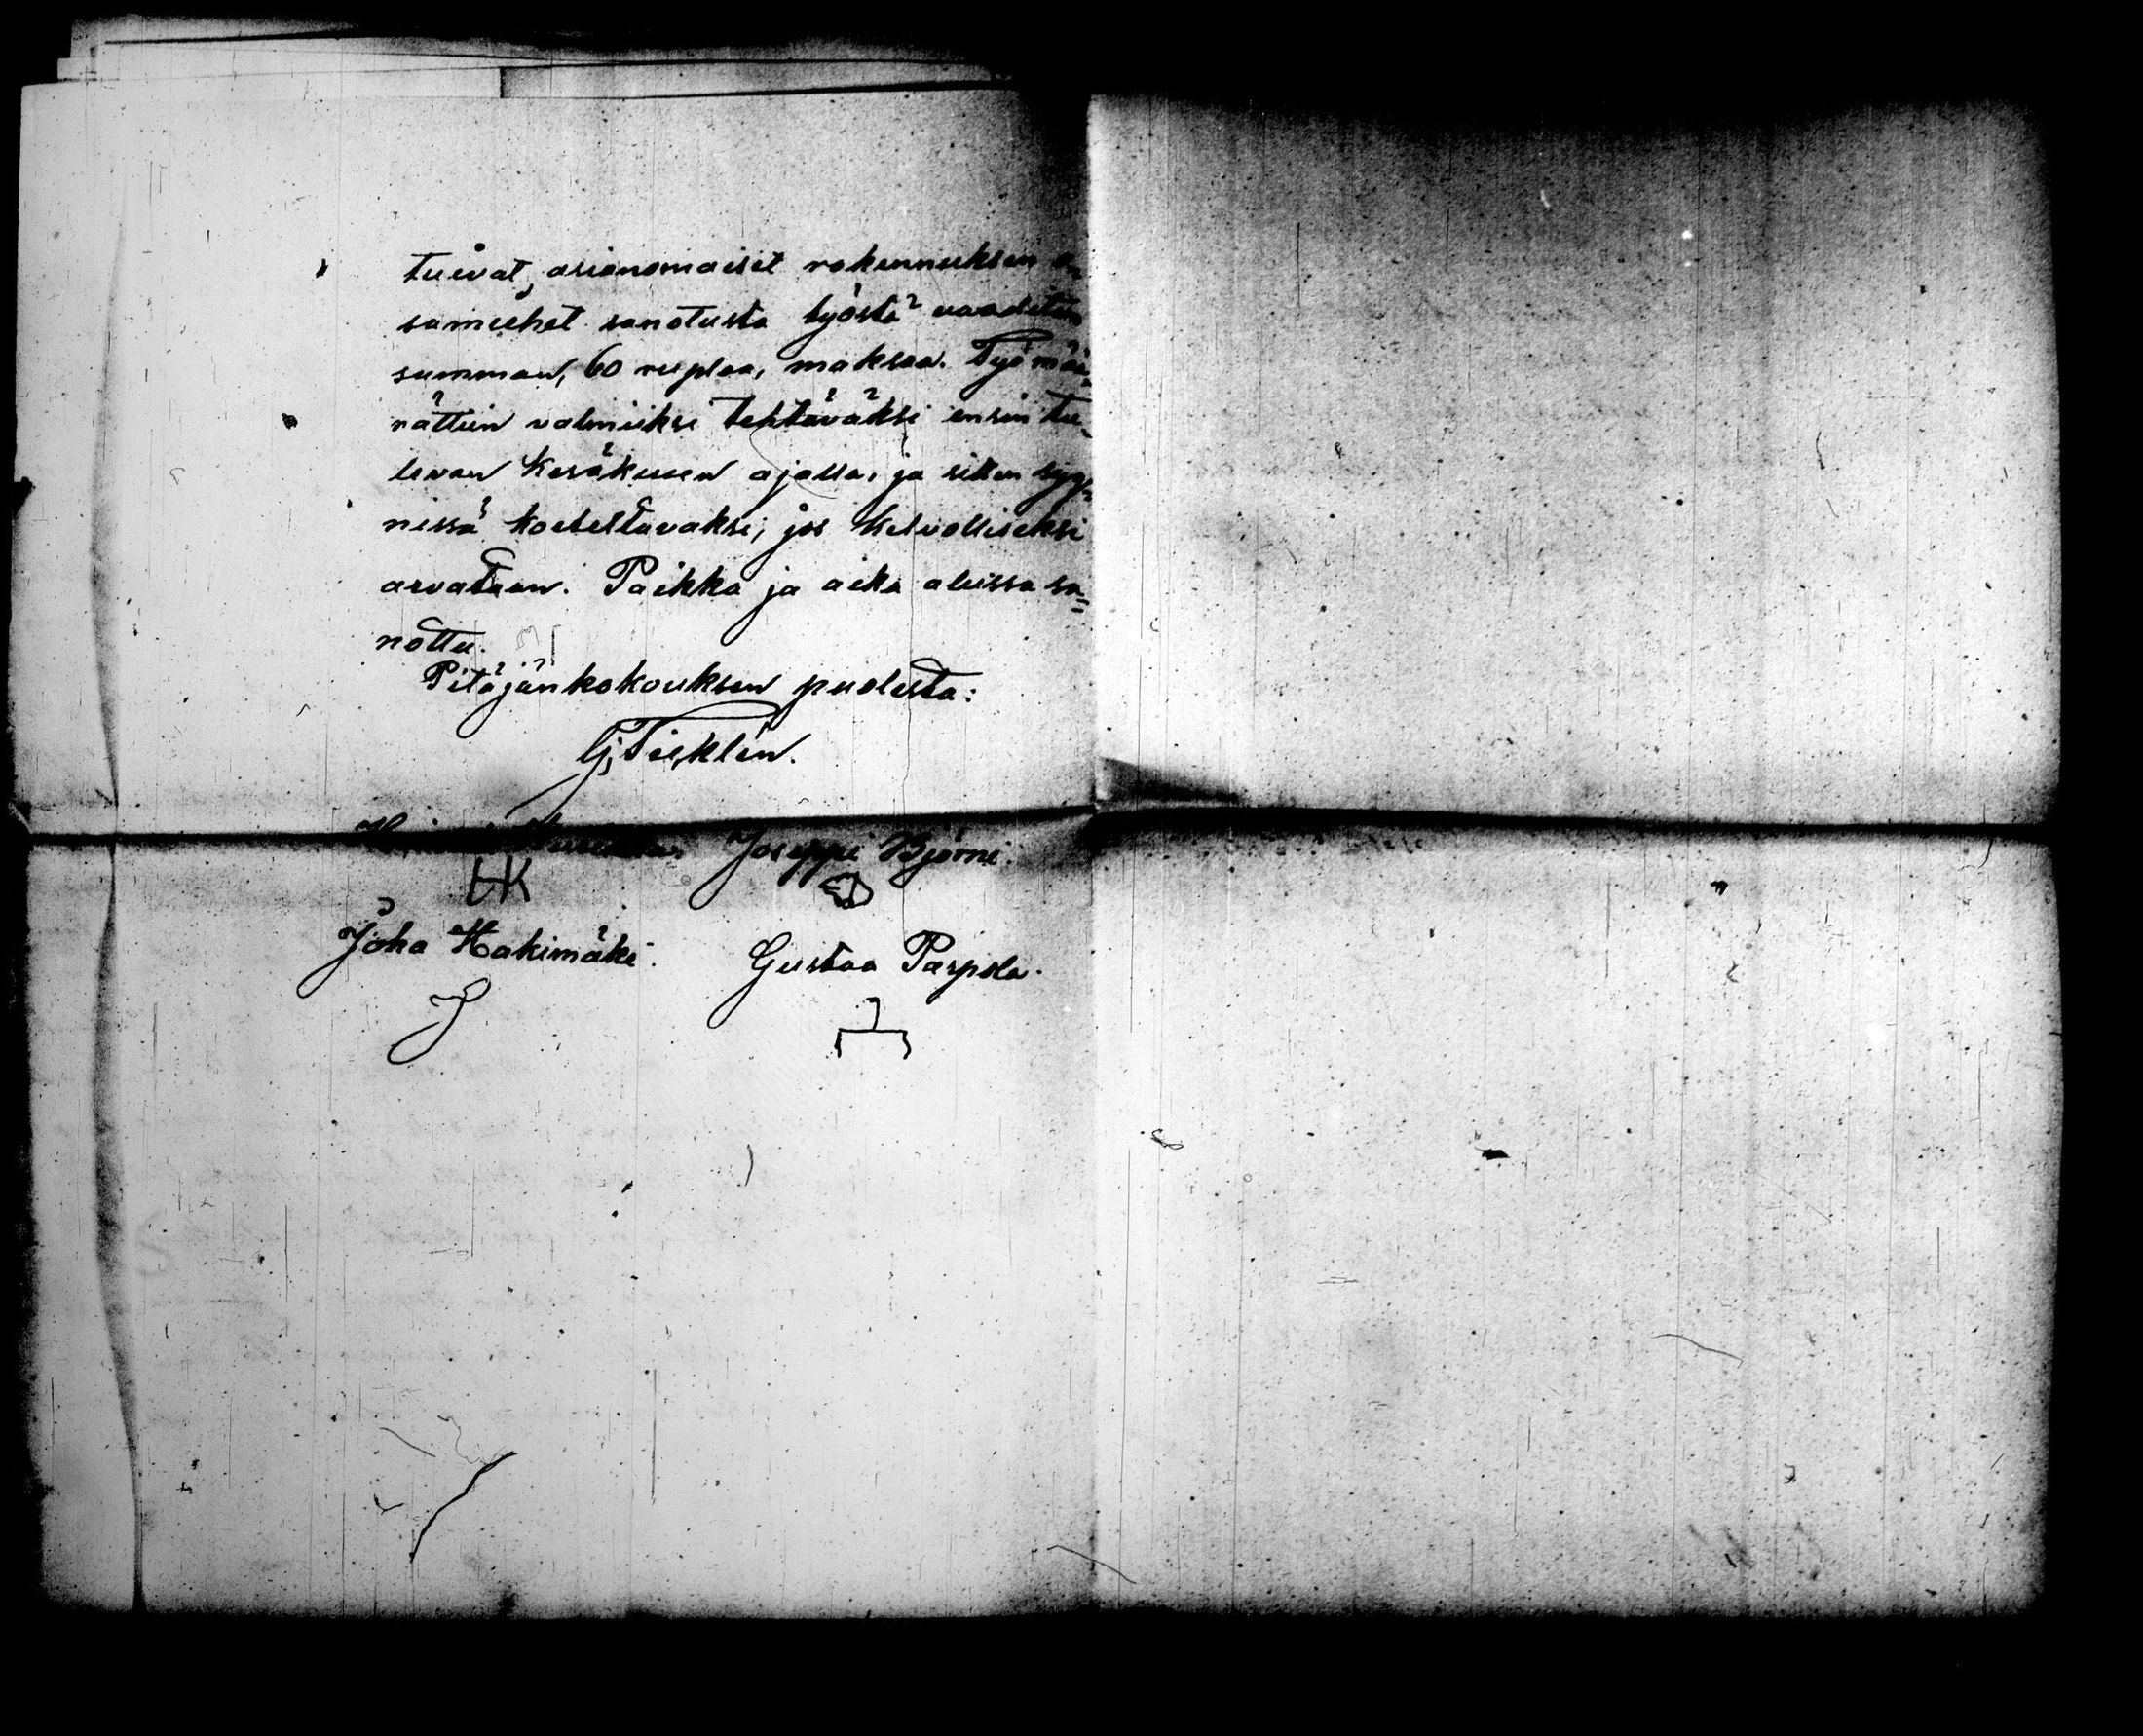 tuivat, asianomaiset rakennuksen o-
samiehet sanotusta työstä vaaditun
summan, 60 ruplaa, maksaa. Työ mää-
rättiin valmiiksi tehtäväksi ensin tu-
levan Kesäkuun ajalla, ja sitten syy-
nissä koeteltavaksi, jos kelvolliseksi
arvataan. Paikka ja aika alussa sa-
nottu.
Pitäjänkokouksen puolesta:
Joseppi Björni.
HK
Joha Hakimäki.
Gustaa Parpola.
J